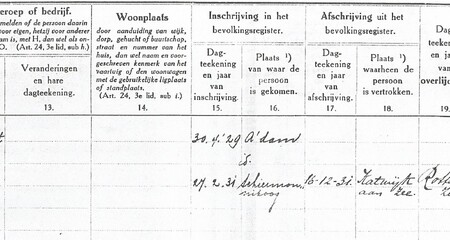 eroep of bedrijf.
melden of de persoon daarin
oor eigen, hetzij voor anderer
am is, met H. dan wel als on-
O. (Art. 24, 3e lid, sub h.)
Veranderingen
en hare
dagteekening.
13.
Woonplaats
door aanduiding van wijk,
dorp, gehucht of buurtschap,
straat en nummer van het
huis, dan wel naam en voor-
geschreven kenmerk van het
vaartuig of den woonwagen
met de gebruikelijke ligplaats
of standplaats.
(Art. 24, 3e lid, sub i.)
14.
Inschrijving in het
bevolkingsregister.
Dag-
teekening
en jaar
van
inschrijving.
15.
Plaats ¹)
van waar de
persoon
is gekomen.
16.
Afschrijving uit het
bevolkingsregister.
Dag-
teekening
en jaar
van
afschrijving.
17.
Plaats ¹)
waarheen de
persoon
is vertrokken.
18.
Dag
teeken
en ja
van
overlijd
19.
30.4.'29 A'dam
id.
27.2.31 Schiermon
nikoog
16-12-31. Katwijk
aan zee